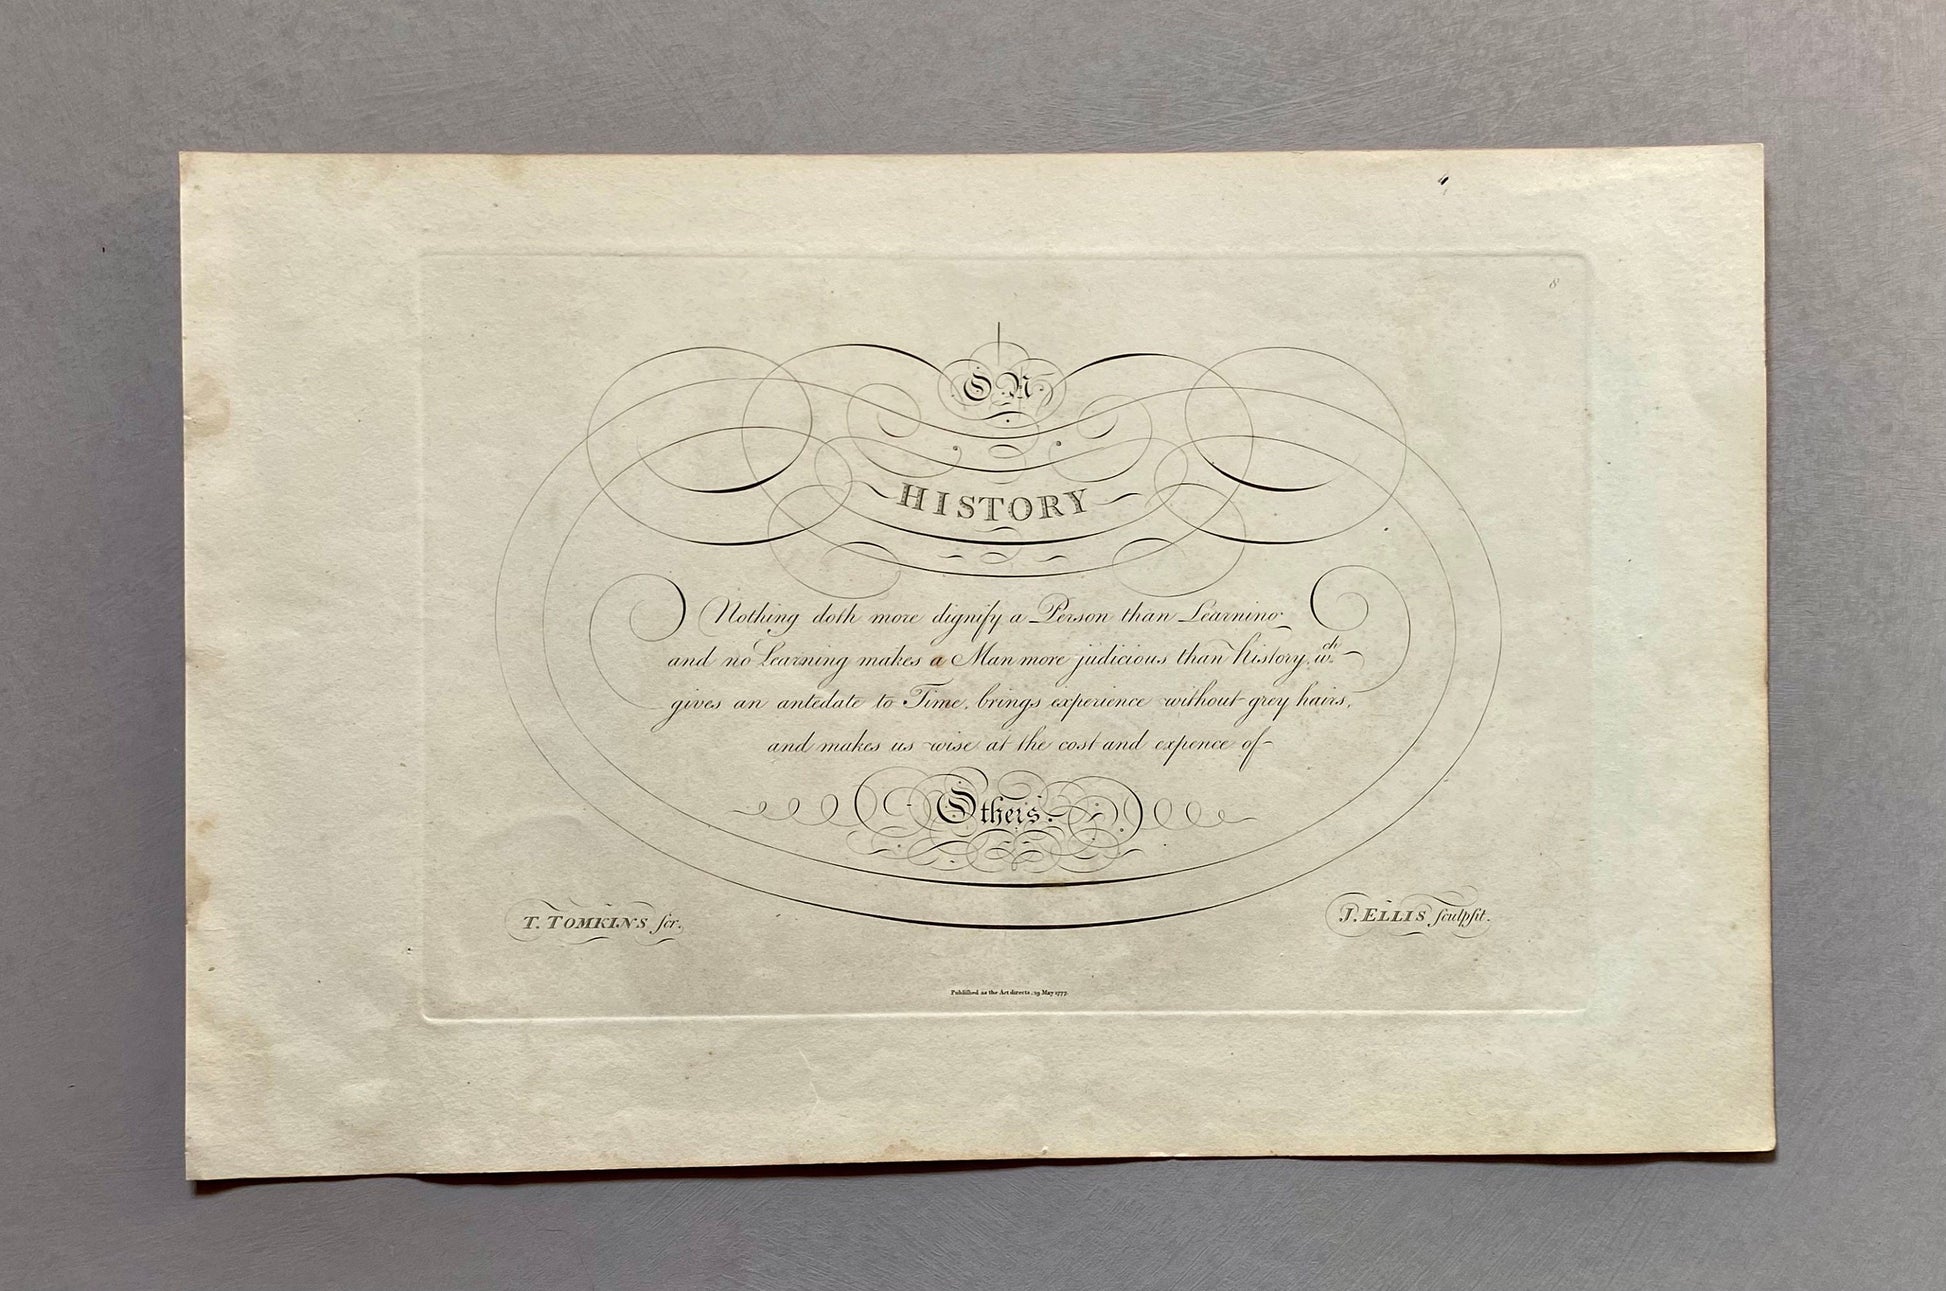 8
ON
HISTORY
Nothing doth more dignify a Person than Learning
and no Learning makes a Man more judicious than history, wch.
gives an antedate to Time, brings experience without grey hairs,
and makes us wise at the cost and expence of
Others.
T. TOMKINS ſcr.
J. ELLIS ſculpſit.
Publiſhed as the Act directs, 29 May 1777.